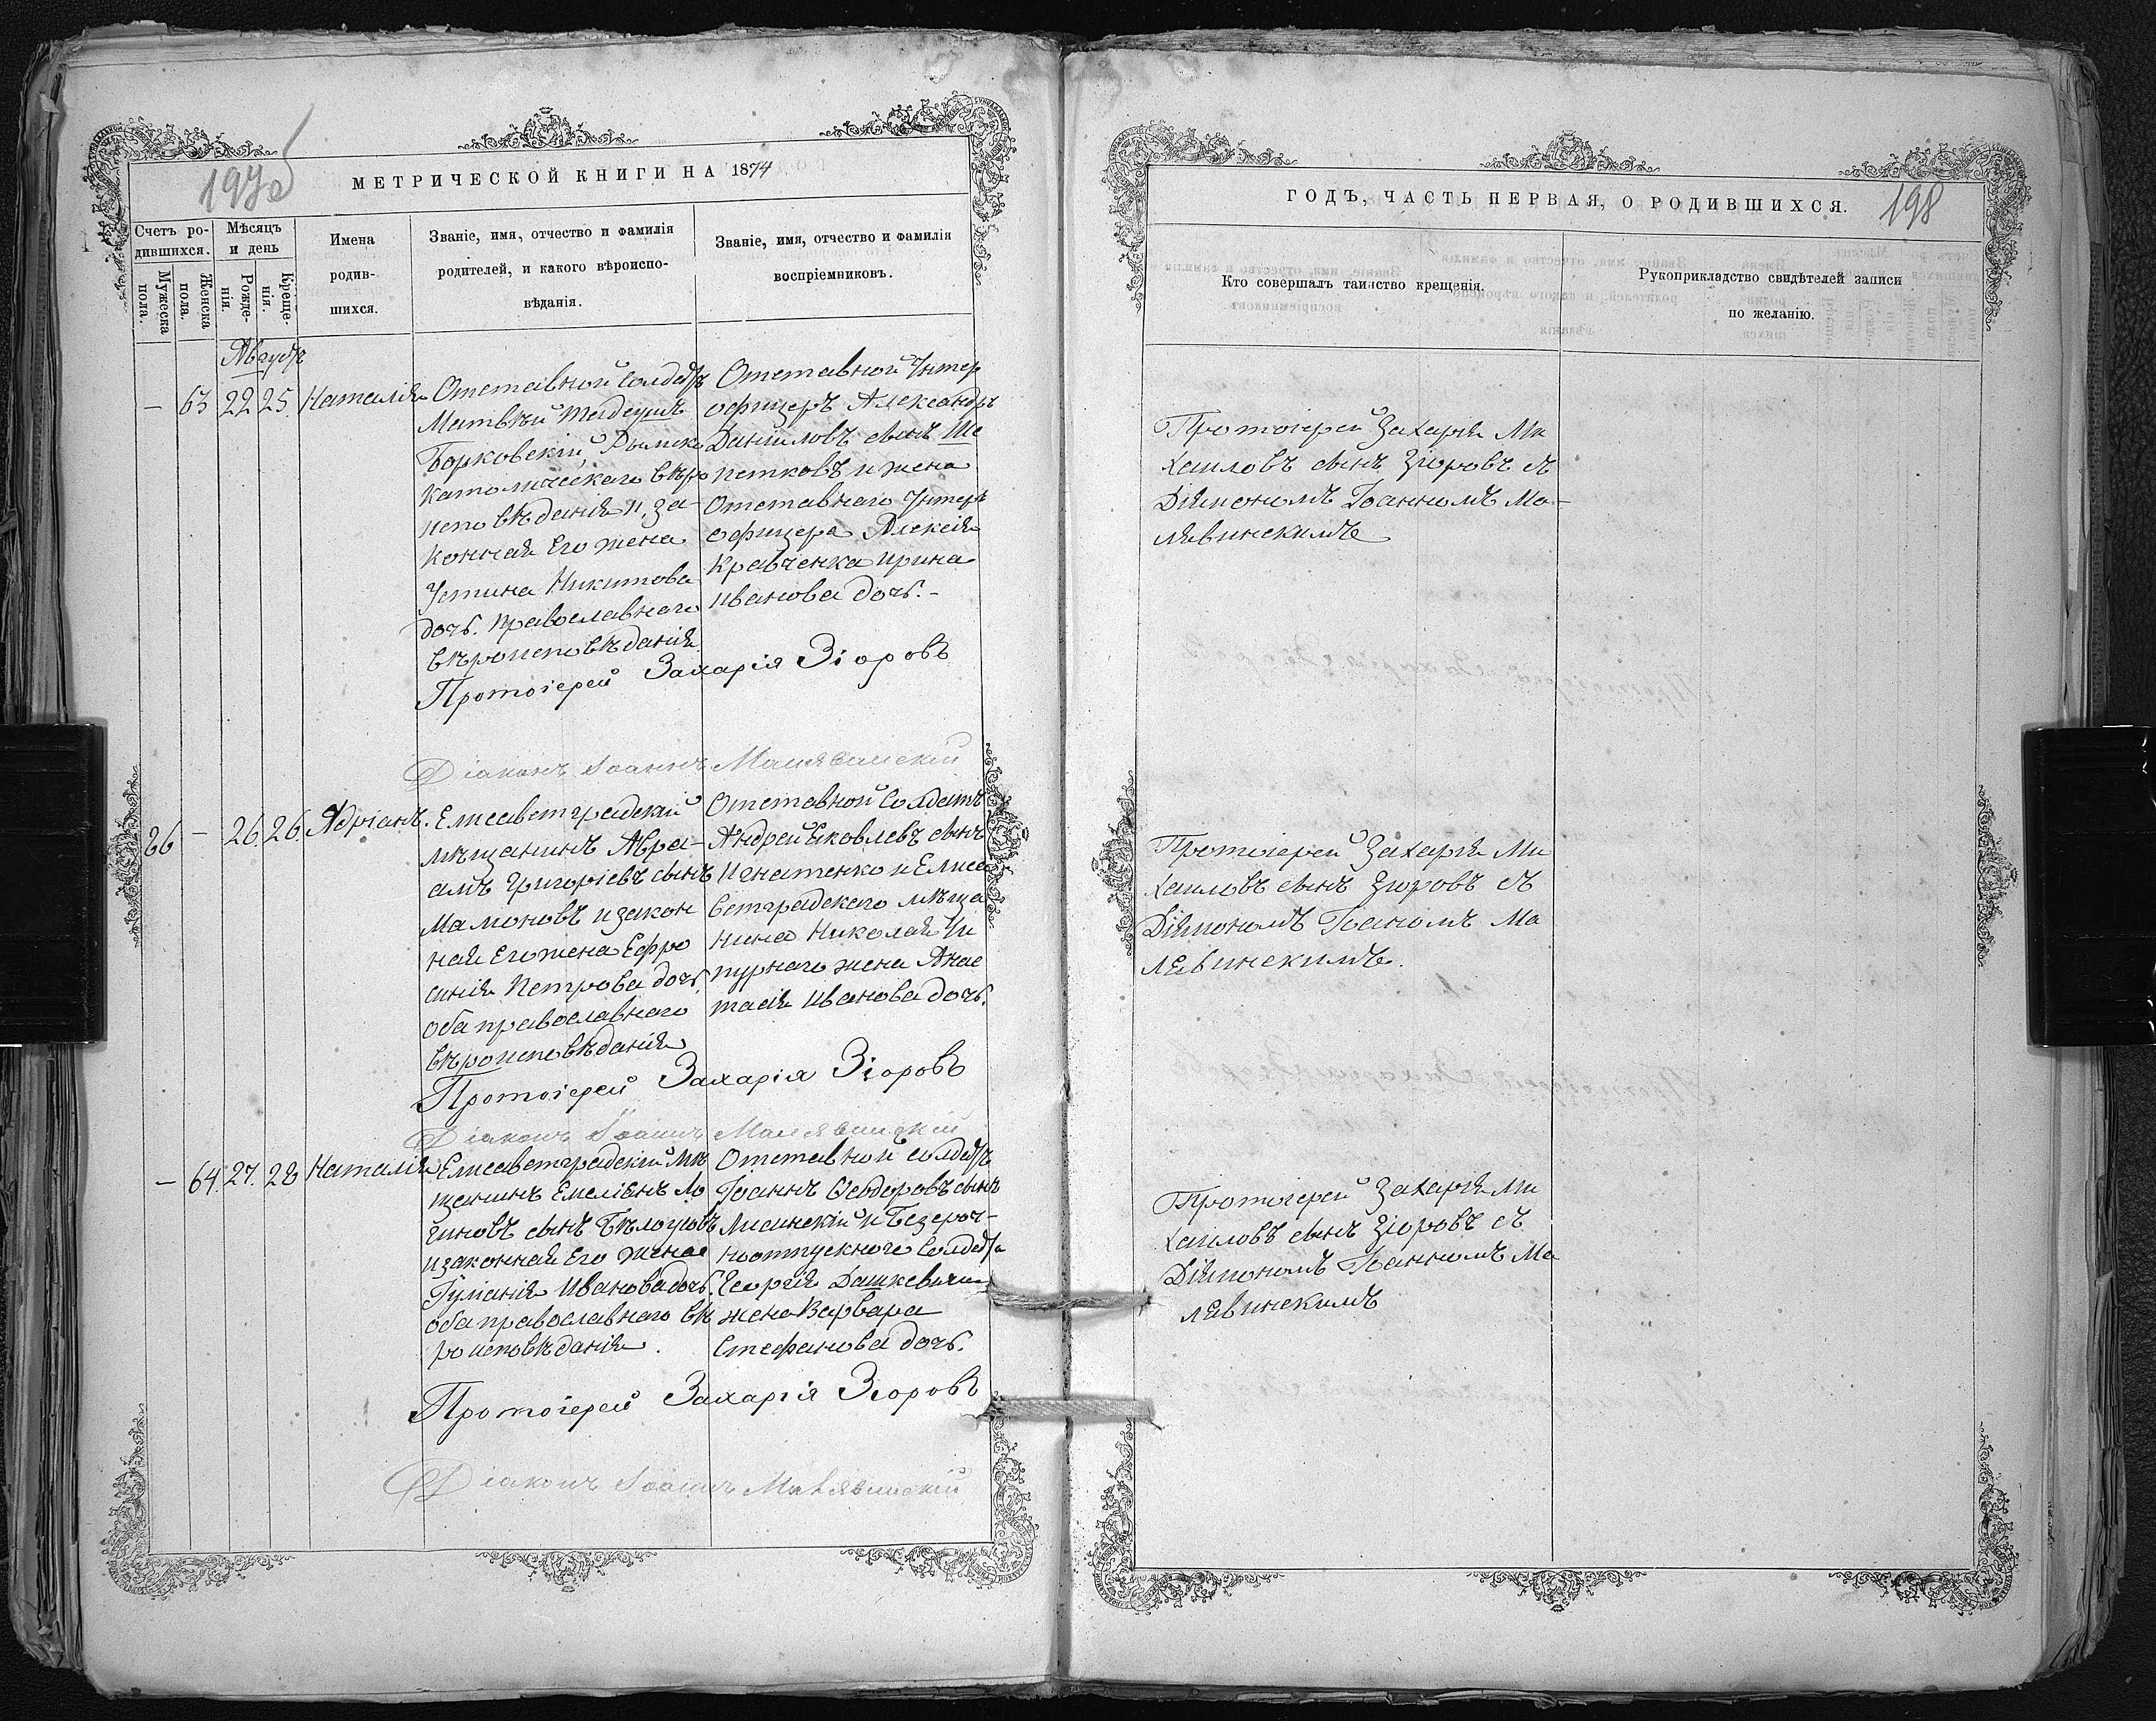 197об
МЕТРИЧЕСКОЙ КНИГИ НА 1874
Счетъ ро-
дившихся.
Мужеска
пола.
Женска
пола.
Мѣсяцъ
и день
Рожде-
нія.
Креще-
нія.
Имена
родив-
шихся.
Званіе, имя, отчество и фамилія
родителей, и какого вѣроиспо-
вѣданія.
Званіе, имя, отчество и фамилія
воспріемниковъ.
Августъ
— 63 22 25. Наталія
Отставной Солдатъ
Матвѣй
Борковскій, Римско
католическаго вѣро
исповѣданія и за-
конная Его жена
Устина Никитова
дочь. православнаго
вѣроисповѣданія
Отставной Унтер
офицеръ Александръ
Даніиловъ сынъ Ше
петковъ и жена
Отставнаго Унтеръ
офицера Алексія
Кравченка Ирина
Иванова дочь. -
Протоіерей Захарія Зіоровъ
Діаконъ Іоаннъ Малявинскій
26. 26. Адріанъ.
Елисаветградскій
мѣщанинъ Авра-
амъ Григоріевъ сынъ
Мамоновъ и закон
ная Его жена Ефро
синія Петрова дочь,
оба православнаго
вѣроисповѣданія
Отставной Солдатъ
Андрей Яковлевъ сынъ
Игнатенко и Елиса
ветградскаго мѣща
нина Николая Чи
гурнаго жена Анас
тасія Иванова дочь.
Протоіерей Захарія Зіоровъ
Діаконъ Іоаннъ Малявинскій
— 64. 27. 28 Наталія
Елисаветградскій мѣ
щанинъ Емеліанъ Ло
гиновъ сынъ Бѣлоусовъ
и законная Его жена
Іуліанія Иванова дочь.
оба православнаго вѣ
роисповѣданія.
Отставной солдатъ
Іоаннъ Ѳеодоровъ сынъ
и Безсроч-
ноотпускного Солдата
Георгія Дашкевича
жена Варвара
Стефанова дочь.
Протоіерей Захарія Зіоровъ
Діаконъ Іоаннъ Малявинскій
198
ГОДЪ, ЧАСТЬ ПЕРВАЯ, О РОДИВШИХСЯ.
Кто совершалъ таинство крещенія.
Рукоприкладство свидѣтелей записи
по желанію.
Протоіерей Захарія Ми
хаиловъ сынъ Зіоровъ съ
Діякономъ Іоанномъ Ма-
лявинскимъ
Протоіерей Захарія Ми
хаиловъ сынъ Зіоровъ съ
Діякономъ Іоаномъ Ма
лявинскимъ.
Протоіерей Захарія Ми
хаиловъ сынъ Зіоровъ съ
Діякономъ Іоанномъ Ма
лявинскимъ